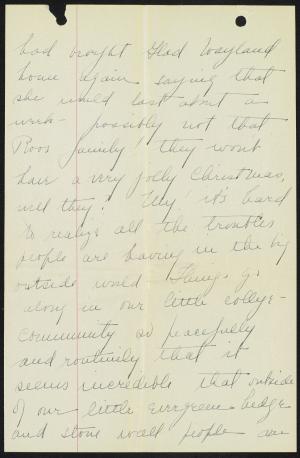 had brought Glad Wayland
home again saying that
she would last about a
week - possibly not that
Poor family! they wont
have a very jolly Christmas,
will they! My it's hard
to realize all the troubles
people are having in the big
outside world. Things go
along in our little college-
community so peacefully
and routinely that it
seems incredible that outside
of our little evergreen hedge
and stone wall people are